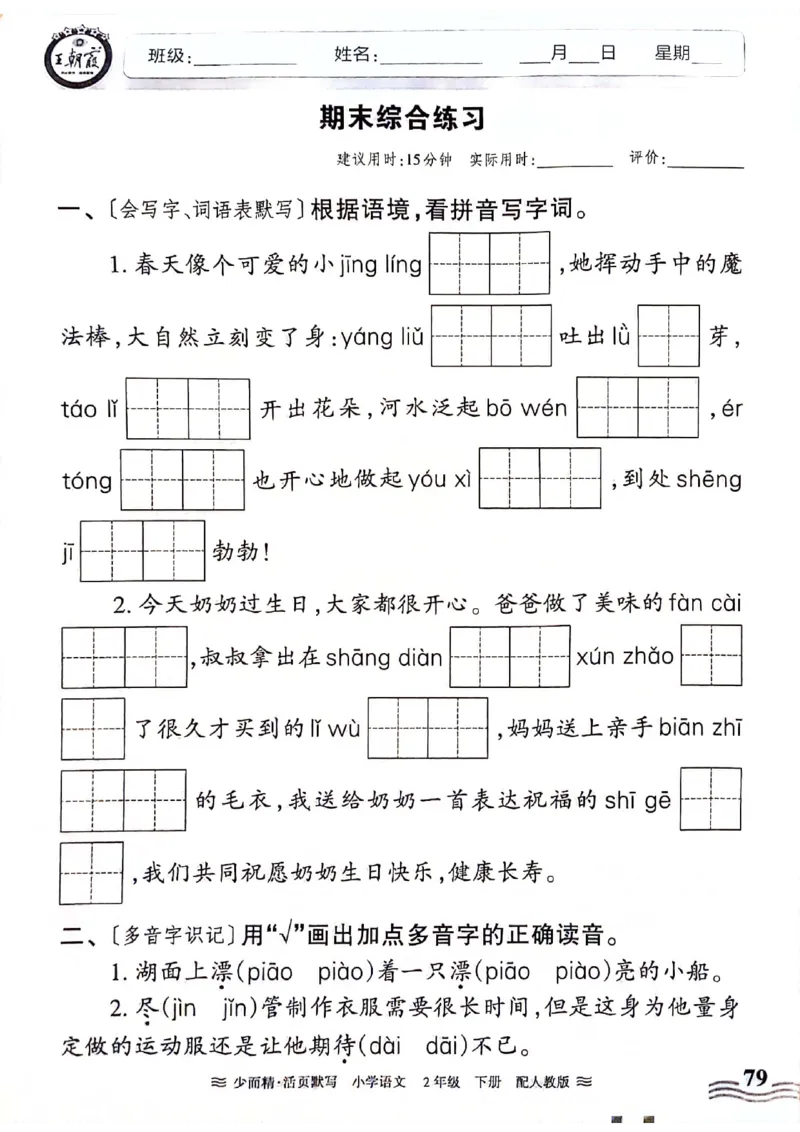 王朝霞
班级:________ 姓名:________ ___月___日 星期___
期末综合练习
建议用时:15分钟 实际用时:________ 评价:________
一、〔会写字、词语表默写〕根据语境,看拼音写字词。
1. 春天像个可爱的小 jīng líng ,她挥动手中的魔
法棒,大自然立刻变了身:yáng liǔ 吐出 lǜ 芽,
táo lǐ 开出花朵,河水泛起 bō wén ,ér
tóng 也开心地做起 yóu xì ,到处 shēng
jī 勃勃!
2. 今天奶奶过生日,大家都很开心。爸爸做了美味的 fàn cài
,叔叔拿出在 shāng diàn xún zhǎo
了很久才买到的 lǐ wù ,妈妈送上亲手 biān zhī
的毛衣,我送给奶奶一首表达祝福的 shī gē
,我们共同祝愿奶奶生日快乐,健康长寿。
二、〔多音字识记〕用“√”画出加点多音字的正确读音。
1. 湖面上漂(piāo piào)着一只漂(piāo piào)亮的小船。
2. 尽(jìn jǐn)管制作衣服需要很长时间,但是这身为他量身
定做的运动服还是让他期待(dài dāi)不已。
少而精·活页默写 小学语文 2年级 下册 配人教版
79